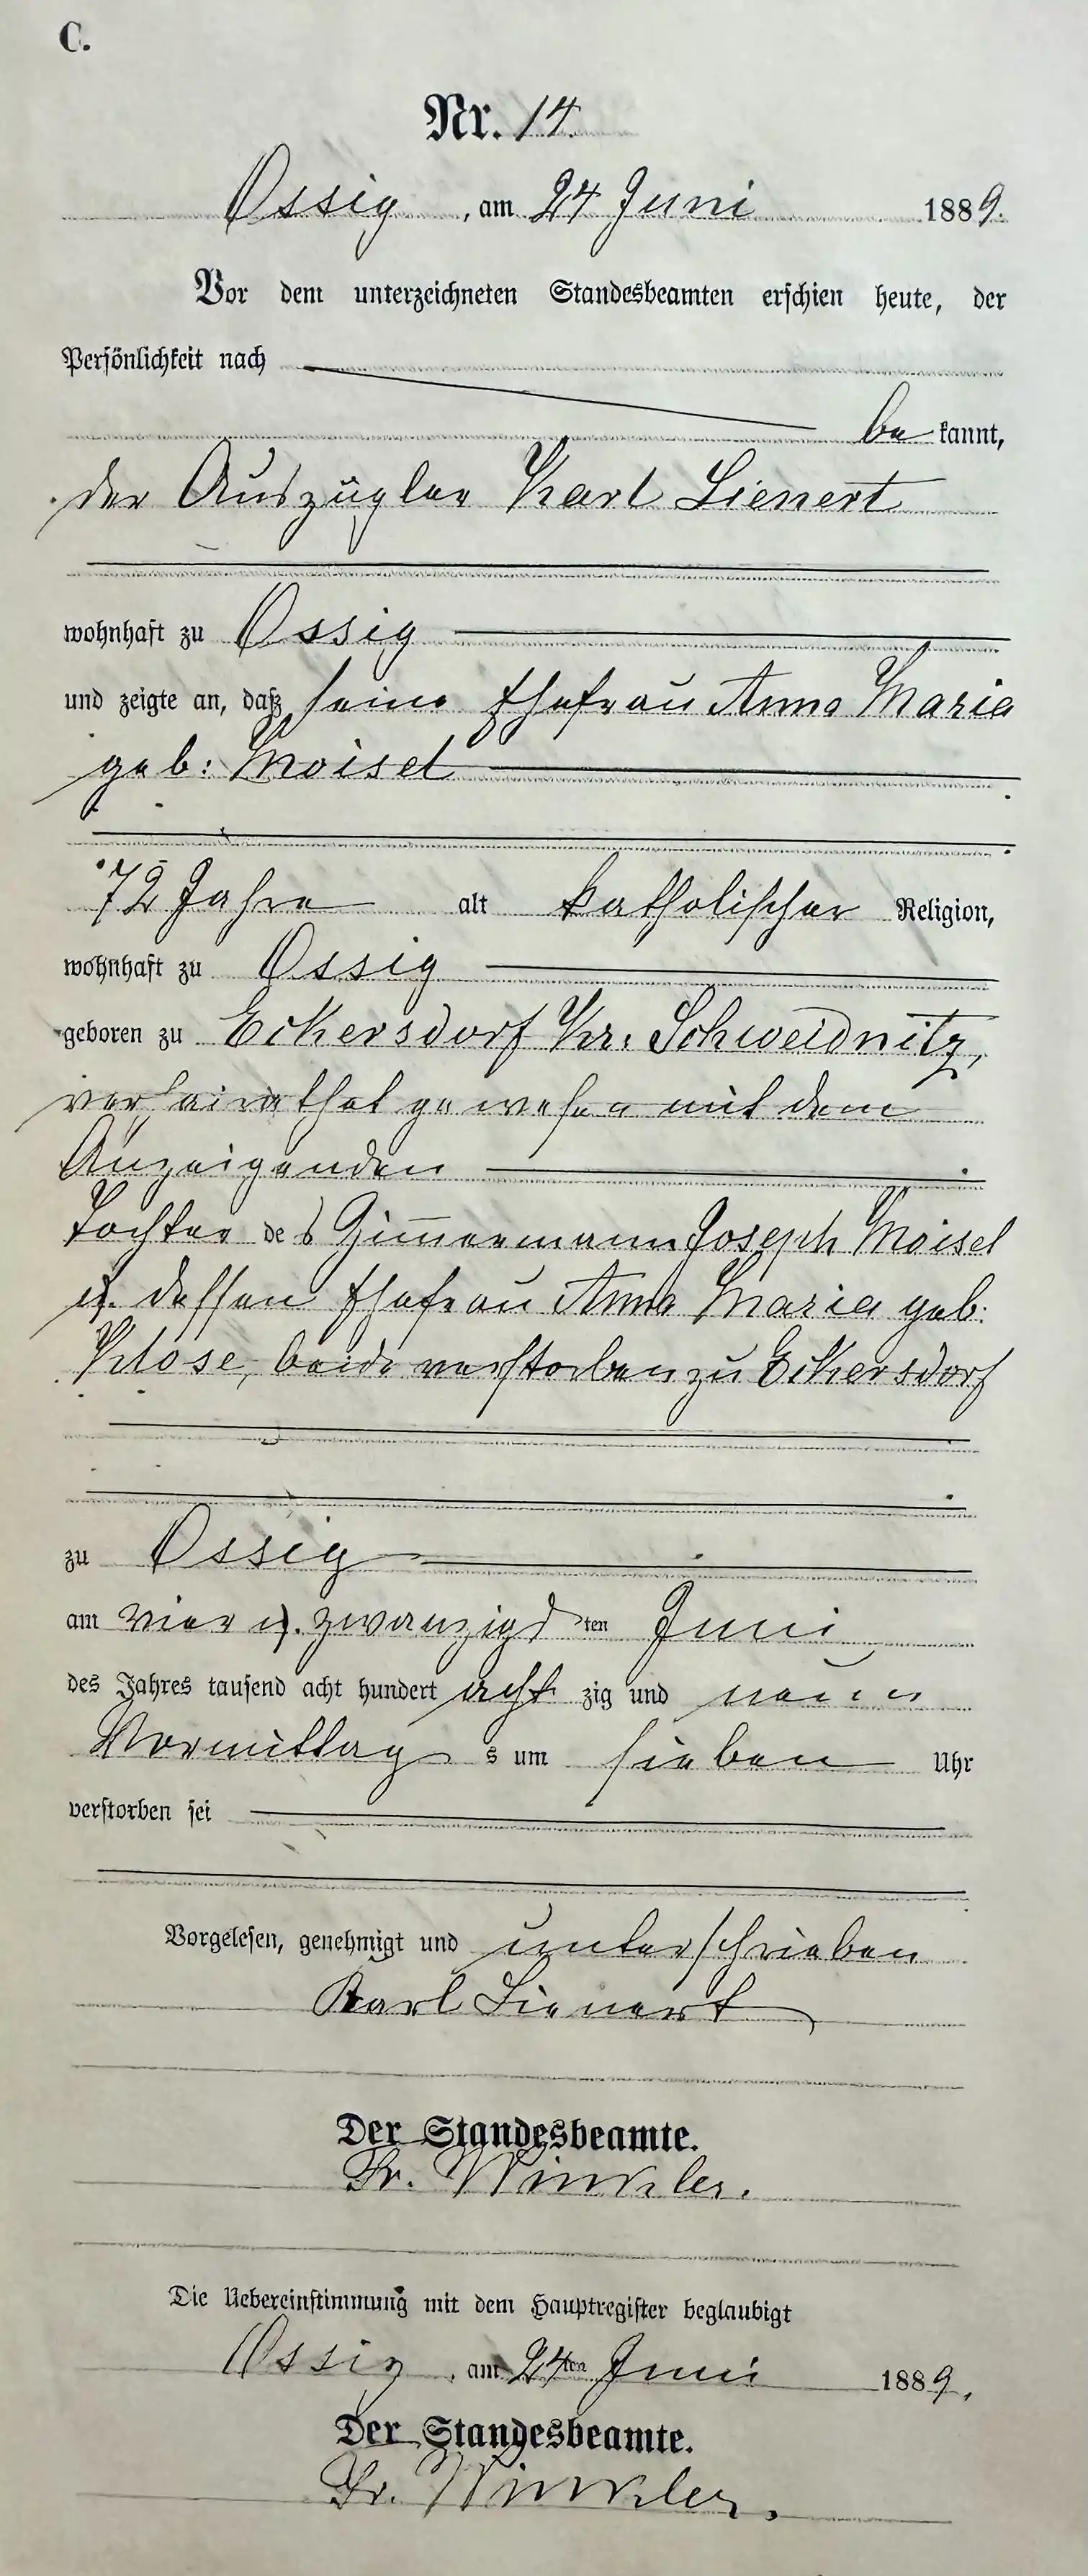 C.
Nr. 14.
Ossig, am 24 Juni 1889.
Vor dem unterzeichneten Standesbeamten erschien heute, der
Persönlichkeit nach
be kannt,
der Auszügler Karl Lienert
wohnhaft zu Ossig
und zeigte an, daß seine Ehefrau Anna Maria
geb: Moisel
72 Jahre alt katholischer Religion,
wohnhaft zu Ossig
geboren zu Eckersdorf Kr. Schweidnitz,
verheirathet gewesen mit dem
Anzeigenden
Tochter des Zimmermann Joseph Moisel
u. dessen Ehefrau Anna Maria geb:
Klose, beide verstorben zu Eckersdorf
zu Ossig
am vier u. zwanzigsten Juni
des Jahres tausend acht hundert acht zig und neun
Vormittag s um sieben Uhr
verstorben sei
Vorgelesen, genehmigt und unterschrieben
Karl Lienert
Der Standesbeamte.
Fr. Winkler.
Die Uebereinstimmung mit dem Hauptregister beglaubigt
Ossig, am 24ten Juni 1889.
Der Standesbeamte.
Fr. Winkler.